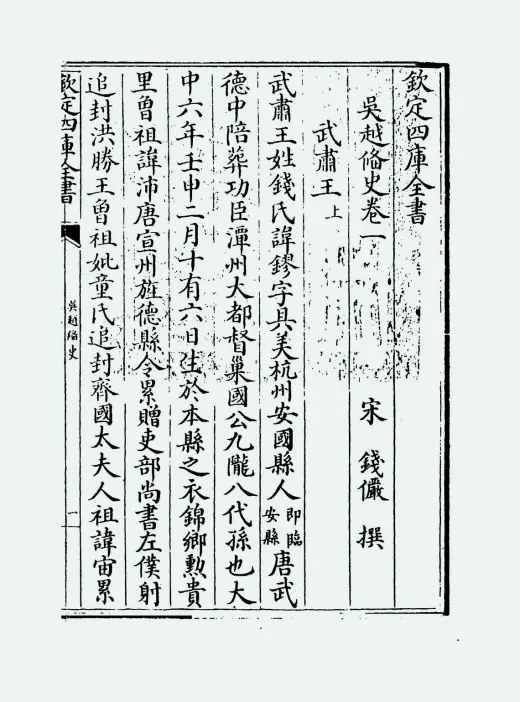 欽定四庫全書
吳越備史卷一
宋 錢儼 撰
武肅王上
武肅王姓錢氏諱鏐字具美杭州安國縣人即臨安縣唐武
德中陪葬功臣潭州大都督巢國公九隴八代孫也大
中六年壬申二月十有六日生於本縣之衣錦鄉勲貴
里曽祖諱沛唐宣州旌德縣令累贈吏部尚書左僕射
追封洪勝王曽祖妣童氏追封齊國太夫人祖諱宙累
欽定四庫全書
吳越備史
一